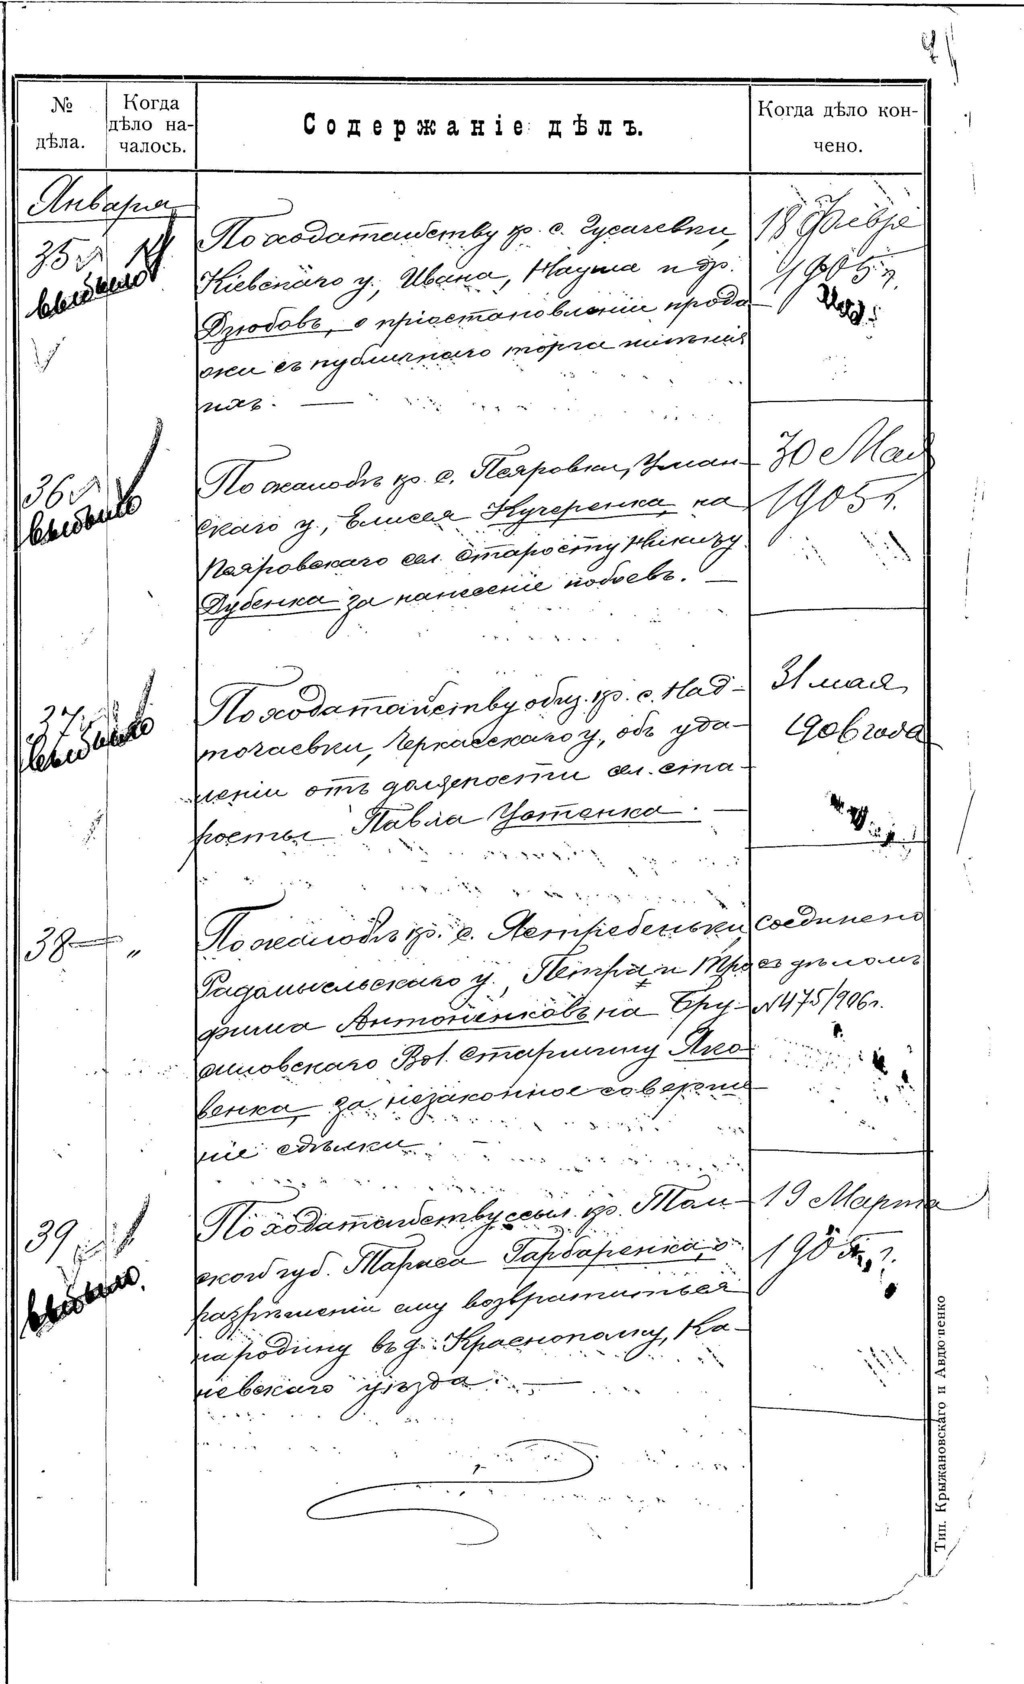 № дѣла.
Когда дѣло на-
чалось.
Содержаніе дѣлъ.
Когда дѣло кон-
чено.
Января
35
выбыло
По ходатайству кр. с. Гусачевки,
Кіевскаго у., Ивана, Наума и др.
Дзюбовъ, о пріостановленіи прода-
жи съ публичнаго торга имѣнія
ихъ. —
18 Февр.
1905 г.
36
выбыло
По жалобѣ кр. с. Псяровки, Уман-
скаго у., Елисея Кучеренка, на
Псяровскаго сел. старосту Никиту
Дубенка за нанесеніе побоевъ. —
30 Мая
1905 г.
37
выбыло
По ходатайству общ. кр. с. Над-
точаевки, Черкасскаго у., объ уда-
леніи отъ должности сел. ста-
росты Павла Устенка. —
31 мая
1906 года
38 „
По жалобѣ кр. с. Ястребеньки,
Радомысльскаго у., Петра и Тро-
фима Антоненковъ на Бру-
силовскаго Вол. Старшину Яко-
венка, за незаконное соверше-
ніе сдѣлки. —
соединено
съ дѣломъ
№ 475/906 г.
39
выбыло.
По ходатайству ссыл. кр. Том-
ской губ. Тараса Гарбаренка, о
разрѣшеніи ему возвратиться
на родину въ д. Краснополку, Ка-
невскаго уѣзда. —
19 Марта
1905 г.
Тип. Крыжановскаго и Авдюшенко